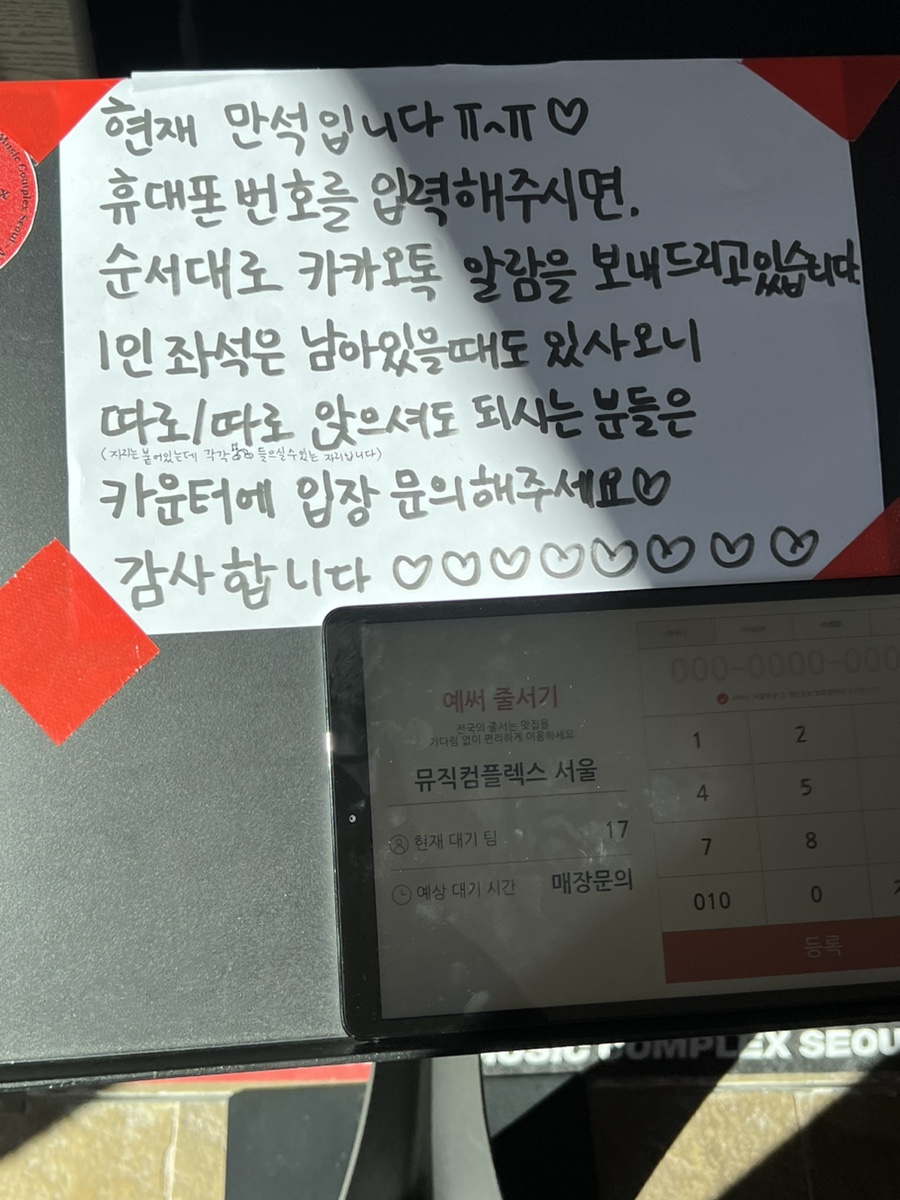 현재 만석입니다 ㅠㅅㅠ♡
휴대폰 번호를 입력해주시면,
순서대로 카카오톡 알람을 보내드리고있습니다
1인 좌석은 남아있을때도 있사오니
따로/따로 앉으셔도 되시는 분들은
(자리는 붙어있는데 각각 들으실수있는 자리입니다)
카운터에 입장 문의해주세요♡
감사합니다 ♡♡♡♡♡♡♡♡
Music Complex Seoul
예써 줄서기
전국의 줄서는 맛집을
기다림 없이 편리하게 이용하세요
뮤직컴플렉스 서울
현재 대기 팀 17
예상 대기 시간 매장문의
000-0000-000
1 2
4 5
7 8
010 0
등록
MUSIC COMPLEX SEOU